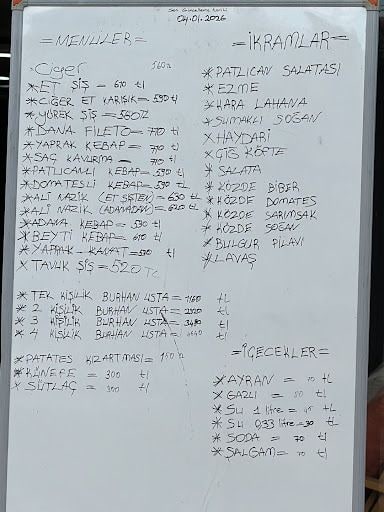 Son Güncelleme tarihi
04.01.2026
=MENÜLER=
Ciğer 560₺
*ET ŞİŞ = 610 tl
*CİĞER ET KARIŞIK = 590 tl
*YÜREK ŞİŞ = 560₺
*DANA FİLETO = 770 tl
*YAPRAK KEBAP = 770 tl
*SAÇ KAVURMA = 710 tl
*PATLICANLI KEBAP = 590 tl
*DOMATESLİ KEBAP = 590 tl
*ALİ NAZİK (ET ŞİŞTEN) = 630 tl
*ALİ NAZİK (ADANADAN) = 620 tl
*ADANA KEBAP = 590 tl
*BEYTİ KEBAP = 610 tl
*YAPRAK-KANAT = tl
*TAVUK ŞİŞ = 520 TL
*TEK KİŞİLİK BURHAN USTA = 1160 tL
*2 KİŞİLİK BURHAN USTA = 2320 tL
*3 KİŞİLİK BURHAN USTA = 3480 tL
*4 KİŞİLİK BURHAN USTA = 4640 tL
*PATATES KIZARTMASI = 150 ₺
*KÜNEFE = 300 tl
*SÜTLAÇ = 300 tl
=İKRAMLAR=
*PATLICAN SALATASI
*EZME
*KARA LAHANA
*SUMAKLI SOĞAN
*HAYDARİ
*ÇİĞ KÖFTE
*SALATA
*KÖZDE BİBER
*KÖZDE DOMATES
*KÖZDE SARIMSAK
*KÖZDE SOĞAN
*BULGUR PİLAVI
*LAVAŞ
=İÇECEKLER=
*AYRAN = 70 tL
*GAZLI = 80 tL
*SU 1 litre = 45 tL
*SU 0,33 litre = 30 tL
*SODA = 70 tL
*ŞALGAM = 70 tL